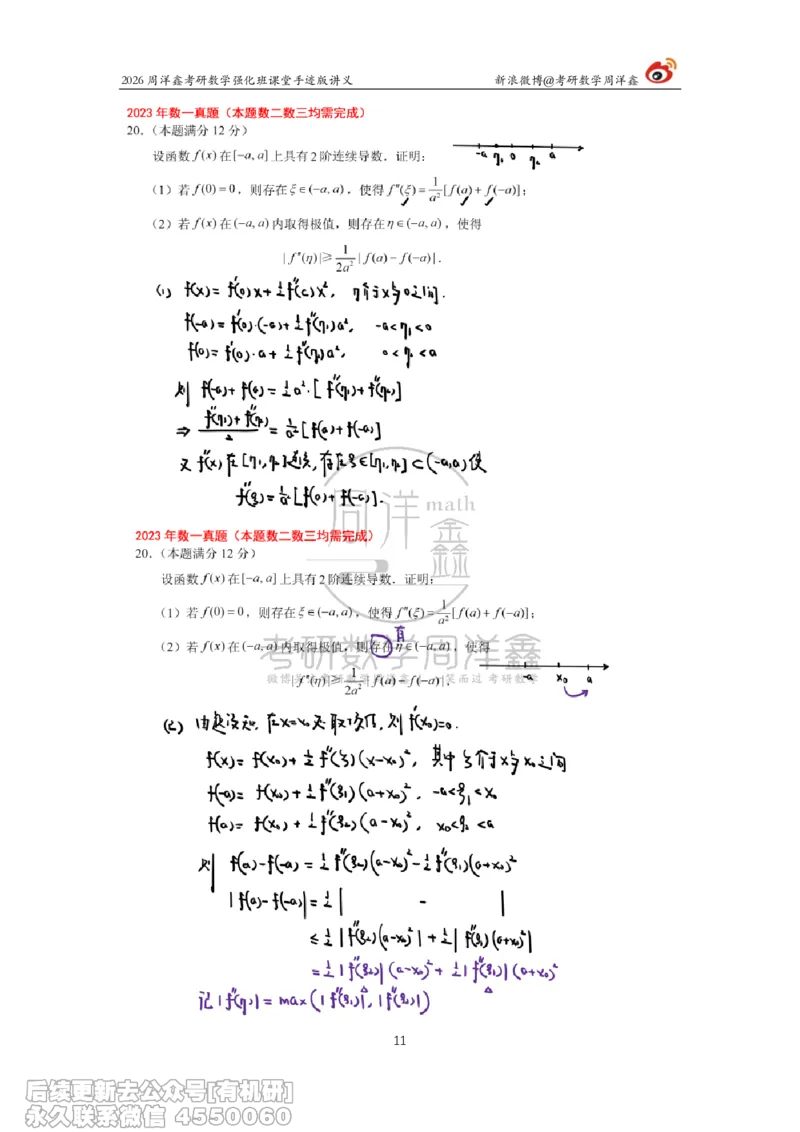 2026 周洋鑫考研数学强化班课堂手迹版讲义 新浪微博@考研数学周洋鑫
2023 年数一真题（本题数二数三均需完成）
20.（本题满分 12 分）
设函数 f(x) 在[-a, a]上具有 2 阶连续导数. 证明:
-a η₁ 0 η₂ a
（1）若 f(0) = 0，则存在 ξ∈(-a, a)，使得 f''(ξ) = 1/a² [f(a) + f(-a)]；
（2）若 f(x) 在(-a, a) 内取得极值，则存在 η∈(-a, a)，使得
|f''(η)| ≥ 1/2a² |f(a) - f(-a)|.
(1) f(x) = f'(0)x + ½f''(c)x², η介于x与0之间.
f(-a) = f'(0)·(-a) + ½f''(η₁)a², -a<η₁<0
f(a) = f'(0)·a + ½f''(η₂)a², 0<η₂<a
则 f(-a) + f(a) = ½a²·[f''(η₁) + f''(η₂)]
⇒ (f''(η₁) + f''(η₂))/2 = 1/a² [f(a) + f(-a)]
又 f''(x) 在 [η₁, η₂] 连续, 存在 ξ∈[η₁, η₂]⊂(-a, a) 使
f''(ξ) = 1/a² [f(a) + f(-a)].
周洋 math
鑫
2023 年数一真题（本题数二数三均需完成）
20.（本题满分 12 分）
设函数 f(x) 在[-a, a]上具有 2 阶连续导数. 证明:
（1）若 f(0) = 0，则存在 ξ∈(-a, a)，使得 f''(ξ) = 1/a² [f(a) + f(-a)]；
（2）若 f(x) 在(-a, a) 内取得极值，则存在 η∈(-a, a)，使得
考研数学周洋鑫
|f''(η)| ≥ 1/2a² |f(a) - f(-a)|.
-a x₀ a
(2) 由题设知, 在x=x₀处取极值, 则 f'(x₀)=0.
f(x) = f(x₀) + ½f''(ξ)(x-x₀)², 其中ξ介于x与x₀之间
f(-a) = f(x₀) + ½f''(ξ₁)(a+x₀)², -a<ξ₁<x₀
f(a) = f(x₀) + ½f''(ξ₂)(a-x₀)², x₀<ξ₂<a
则 f(a)-f(-a) = ½f''(ξ₂)(a-x₀)² - ½f''(ξ₁)(a+x₀)²
|f(a)-f(-a)| = ½| - |
≤ ½|f''(ξ₂)(a-x₀)²| + ½|f''(ξ₁)(a+x₀)²|
= ½|f''(ξ₂)|(a-x₀)² + ½|f''(ξ₁)|(a+x₀)²
记 |f''(η)| = max(|f''(ξ₁)|, |f''(ξ₂)|)
11
后续更新去公众号[有机研]
永久联系微信 4550060